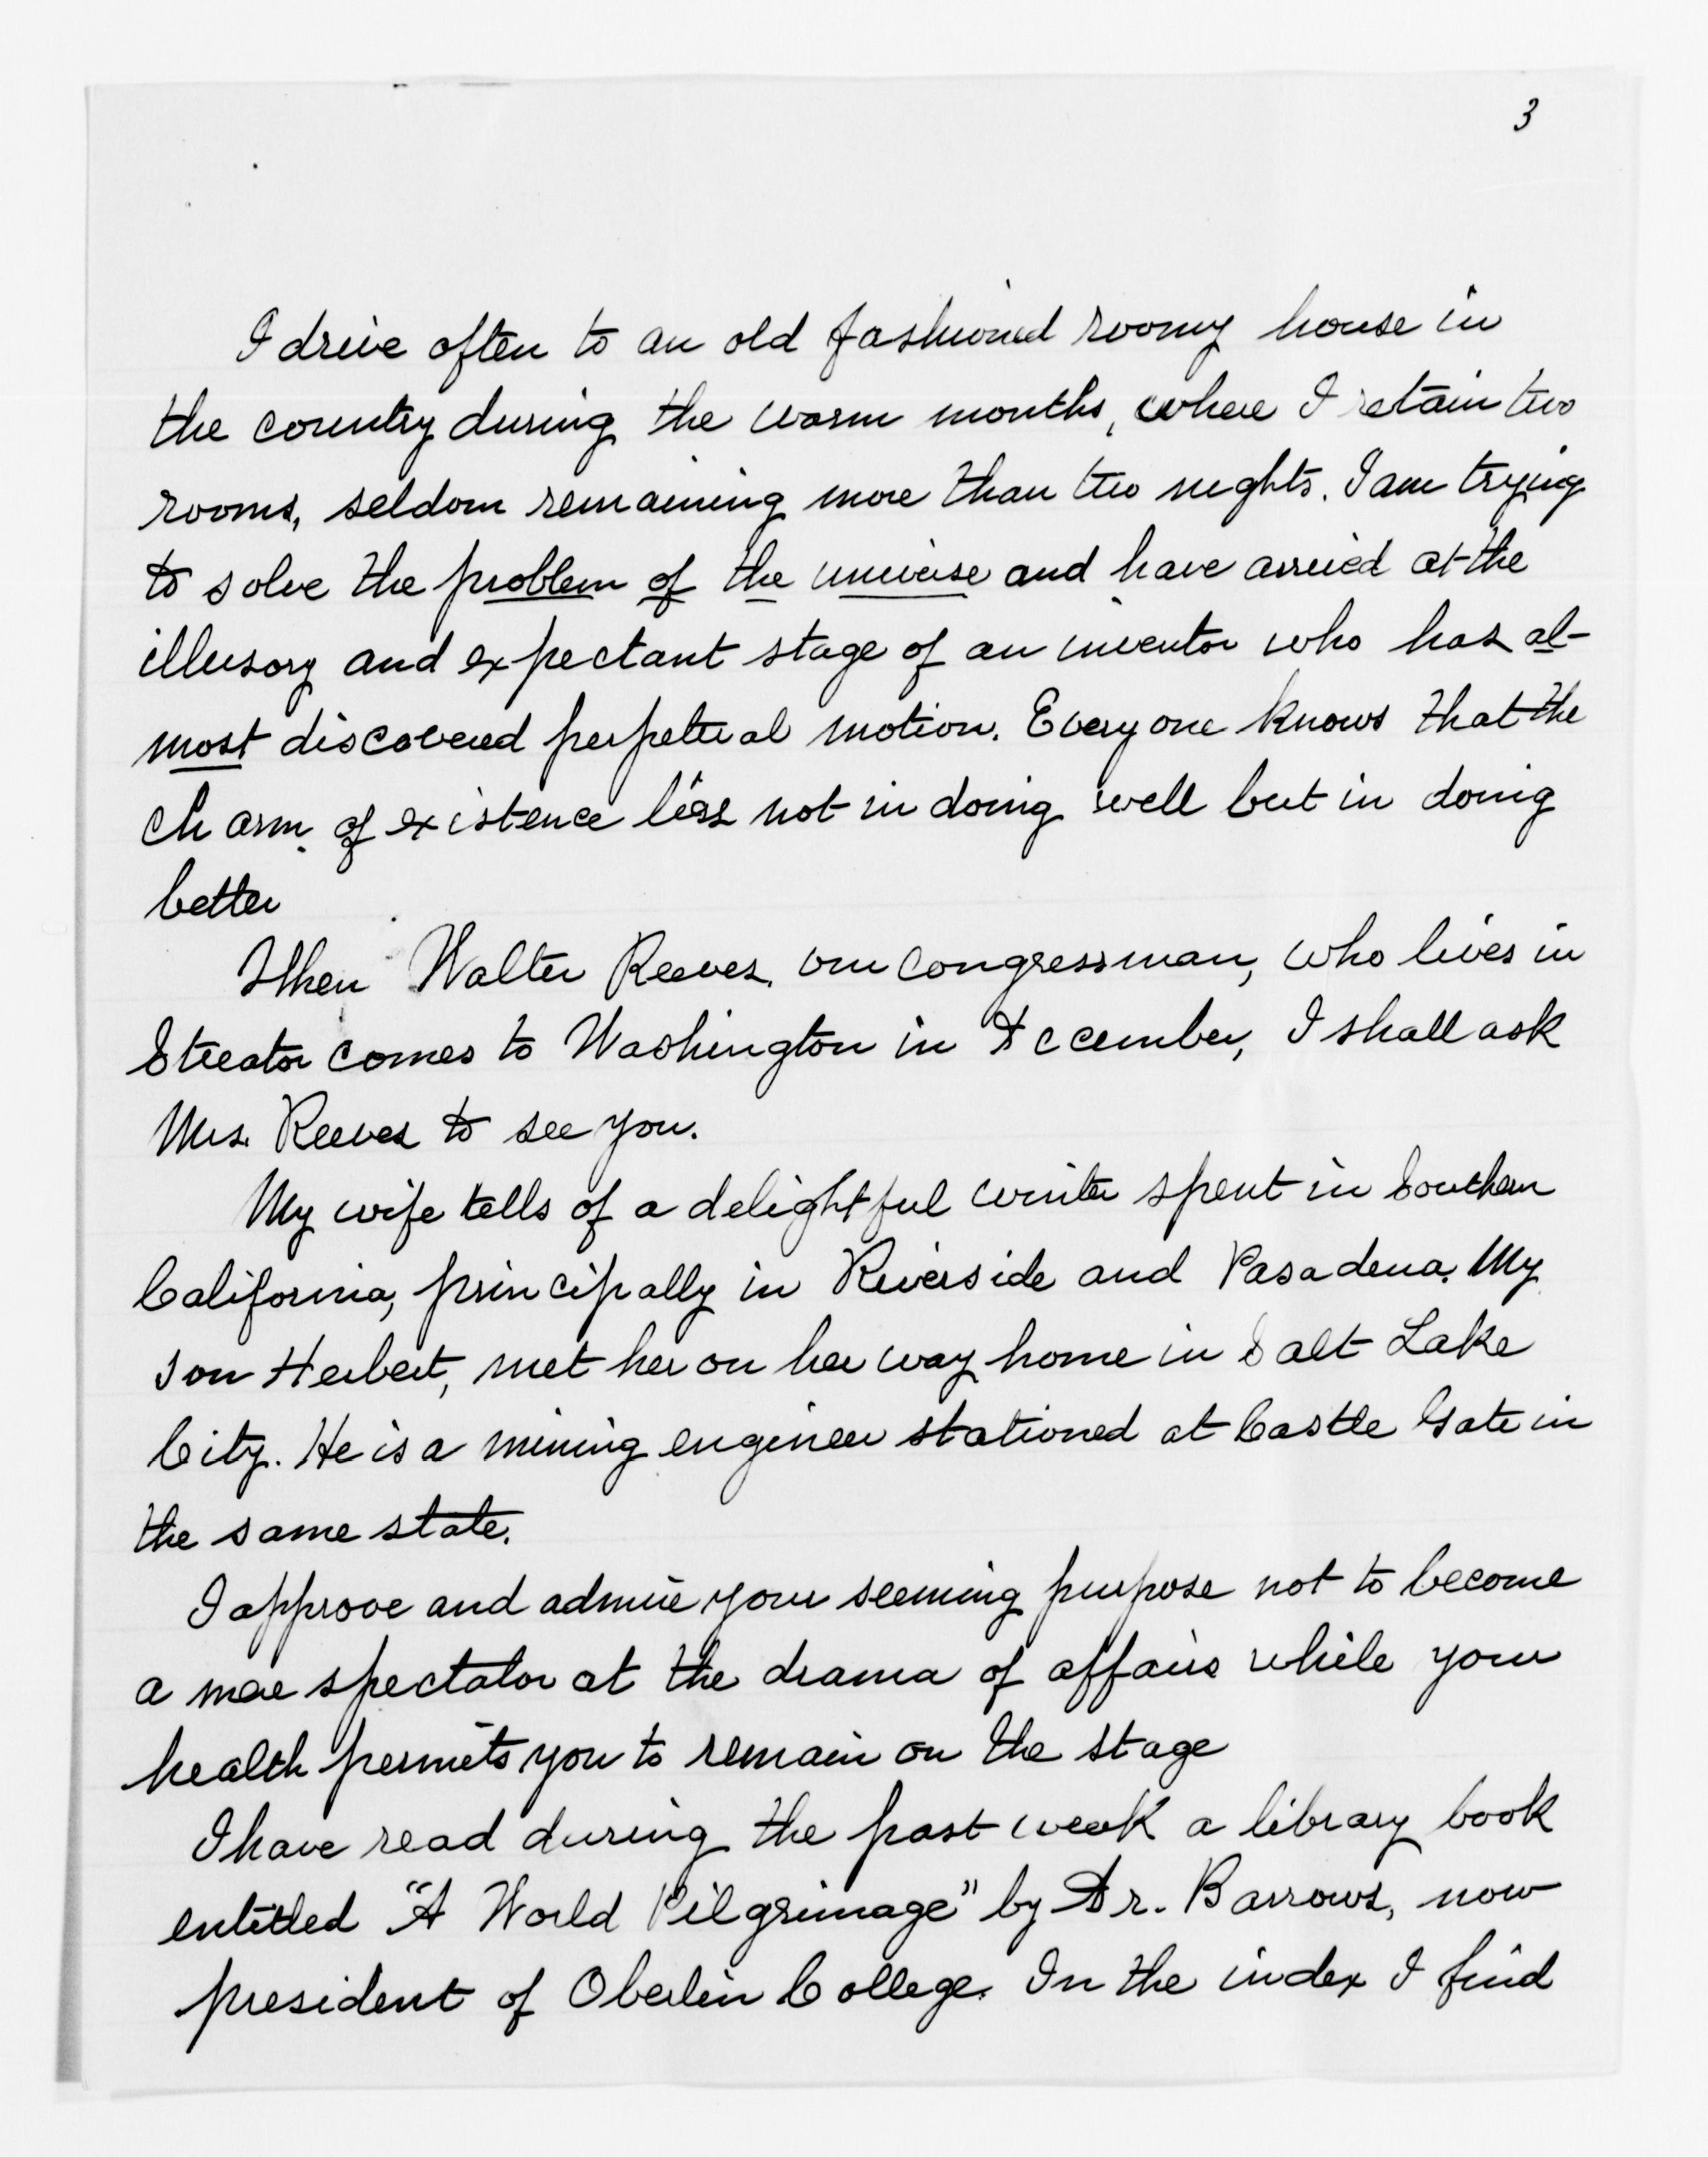 3
I drive often to an old fashioned roomy house in
the country during the warm months, where I retain two
rooms, seldom remaining more than two nights. I am trying
to solve the problem of the universe and have arrived at the
illusory and expectant stage of an inventor who has al-
most discovered perpetual motion. Every one knows that the
charm of existence lies not in doing well but in doing
better
When Walter Reeves, our congressman, who lives in
Streator comes to Washington in December, I shall ask
Mrs. Reeves to see you.
My wife tells of a delightful winter spent in Southern
California, principally in Riverside and Pasadena. My
son Herbert, met her on her way home in Salt Lake
City. He is a mining engineer stationed at Castle Gate in
the same state.
I approve and admire your seeming purpose not to become
a mere spectator at the drama of affairs while your
health permits you to remain on the stage
I have read during the past week a library book
entitled "A World Pilgrimage" by Dr. Barrows, now
president of Oberlin College. In the index I find